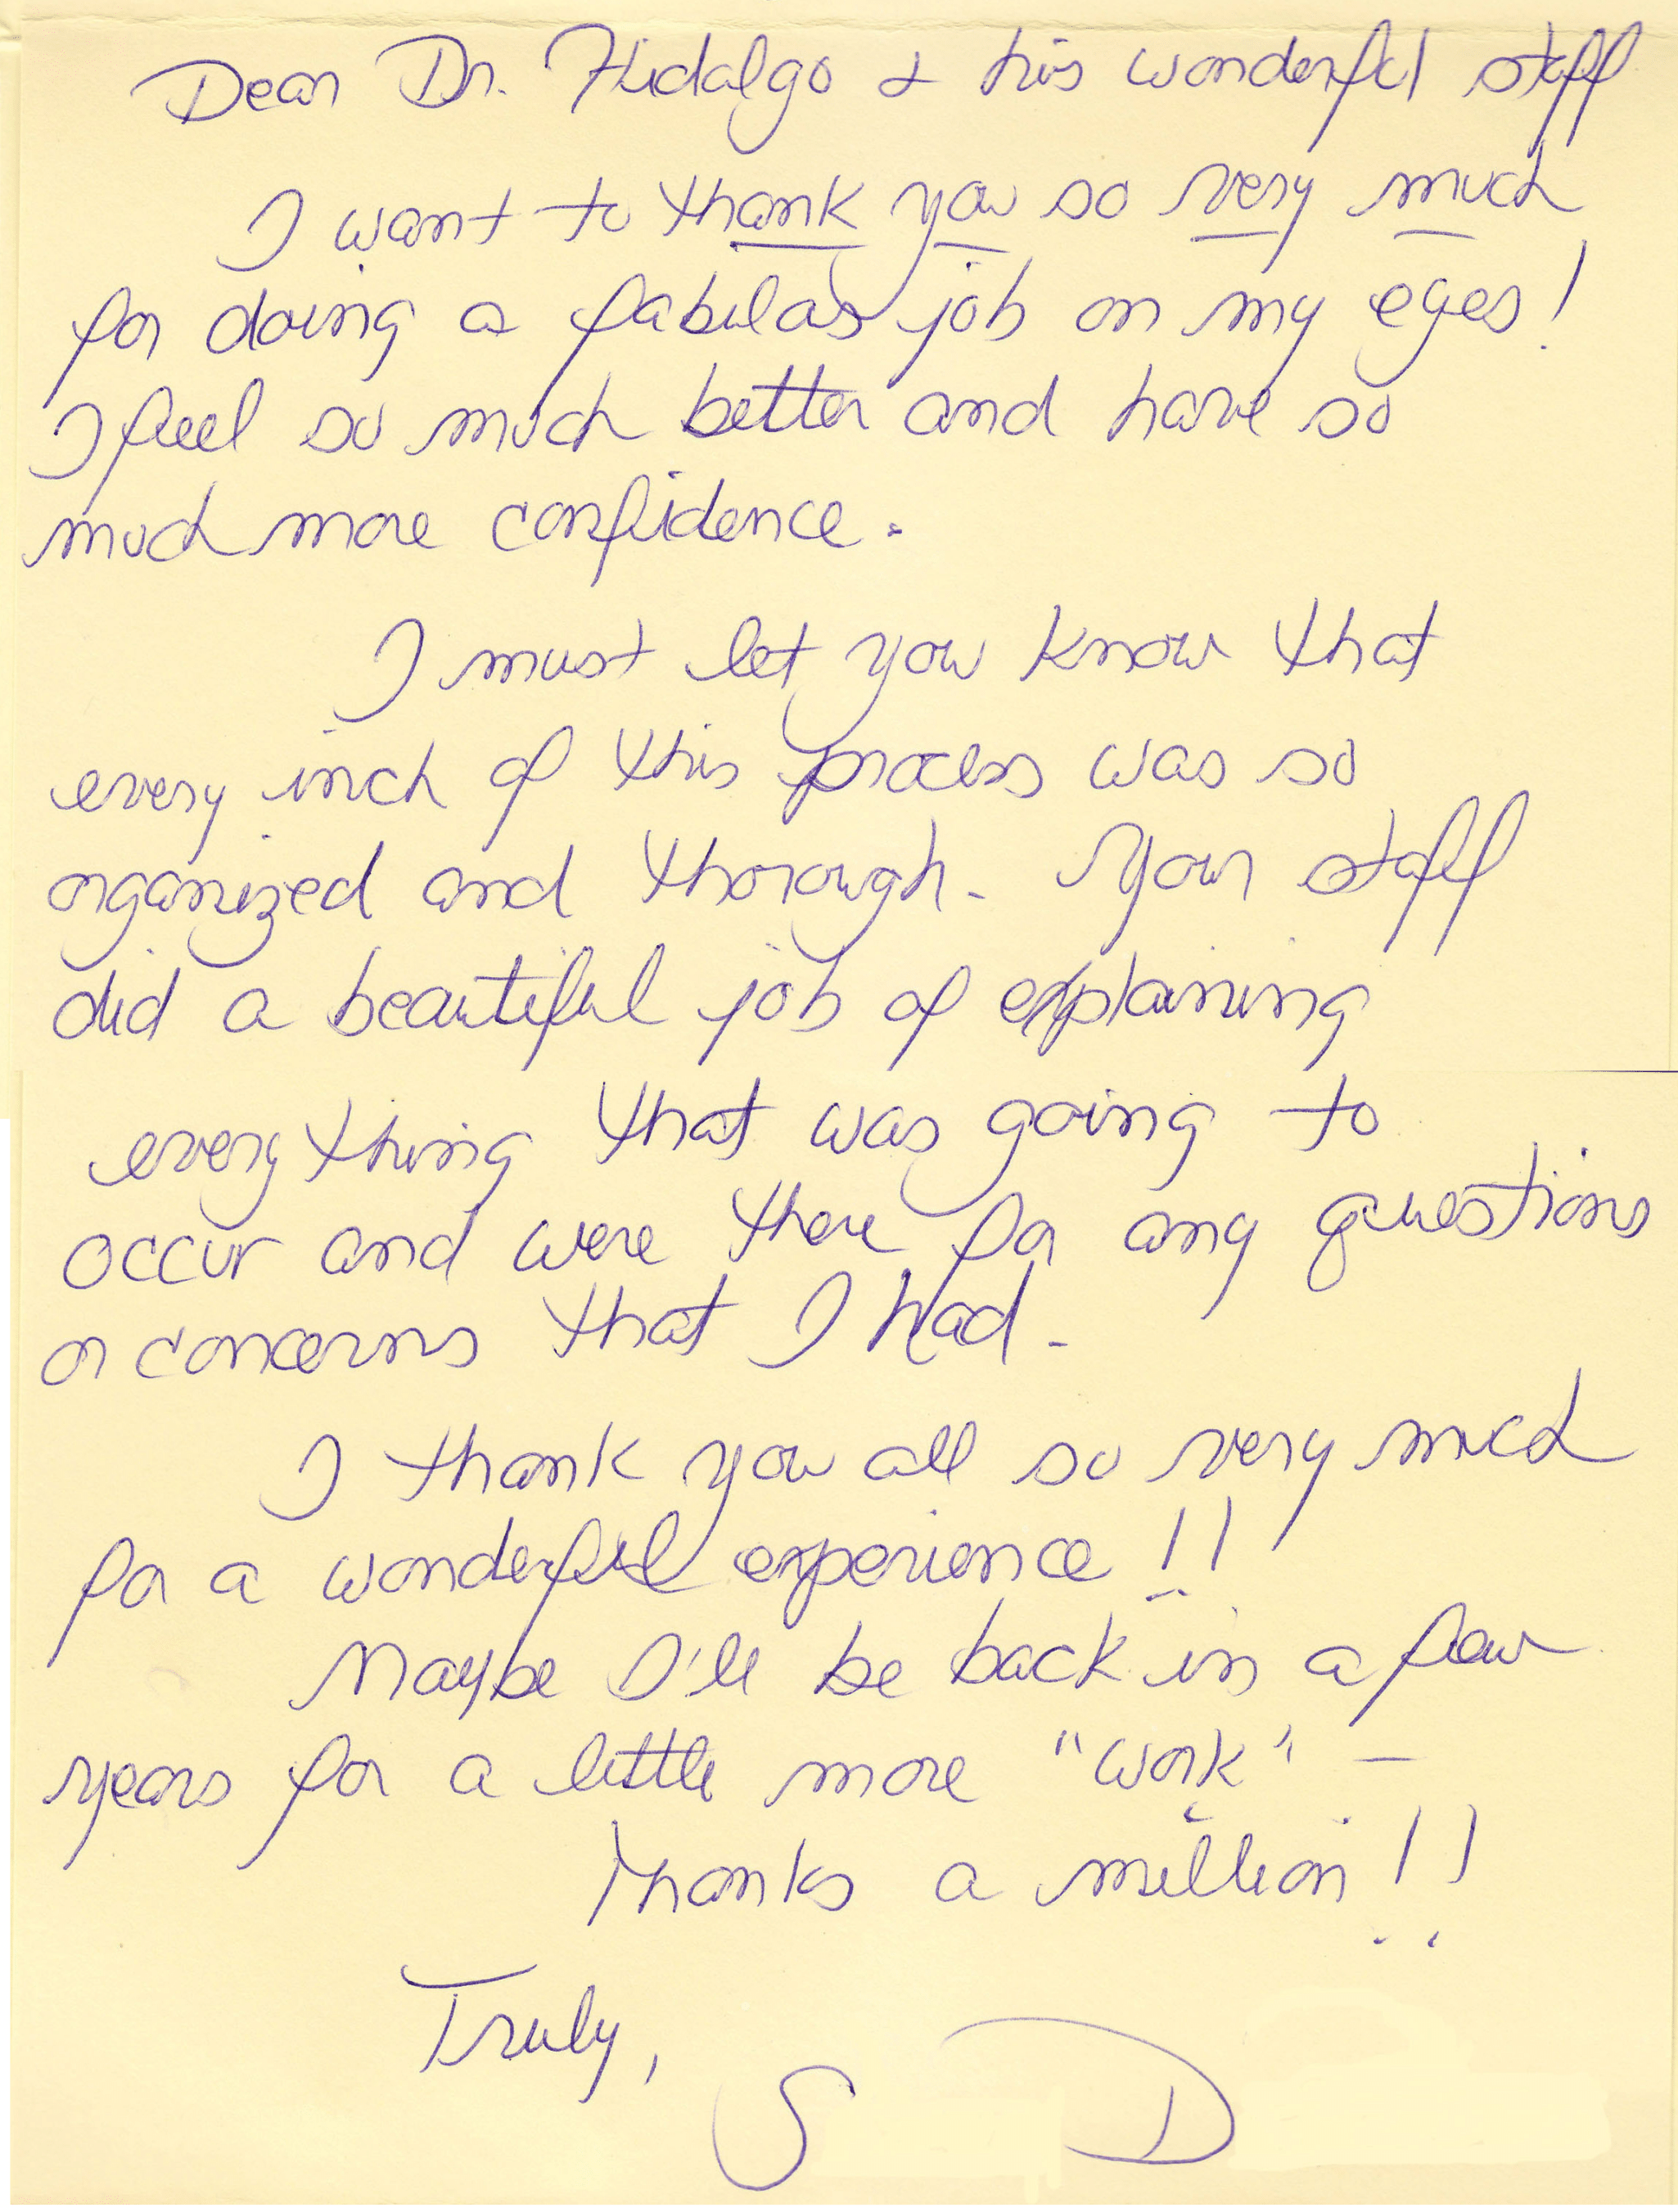 Dear Dr. Hidalgo & his wonderful staff
I want to thank you so very much
for doing a fabulas job on my eyes!
I feel so much better and have so
much more confidence.
I must let you know that
every inch of this process was so
organized and thorough. Your staff
did a beautiful job of explaining
everything that was going to
occur and were there for any questions
or concerns that I had.
I thank you all so very much
for a wonderful experience!!
Maybe I'll be back in a few
years for a little more "work" –
Thanks a million!!
Truly,
S D